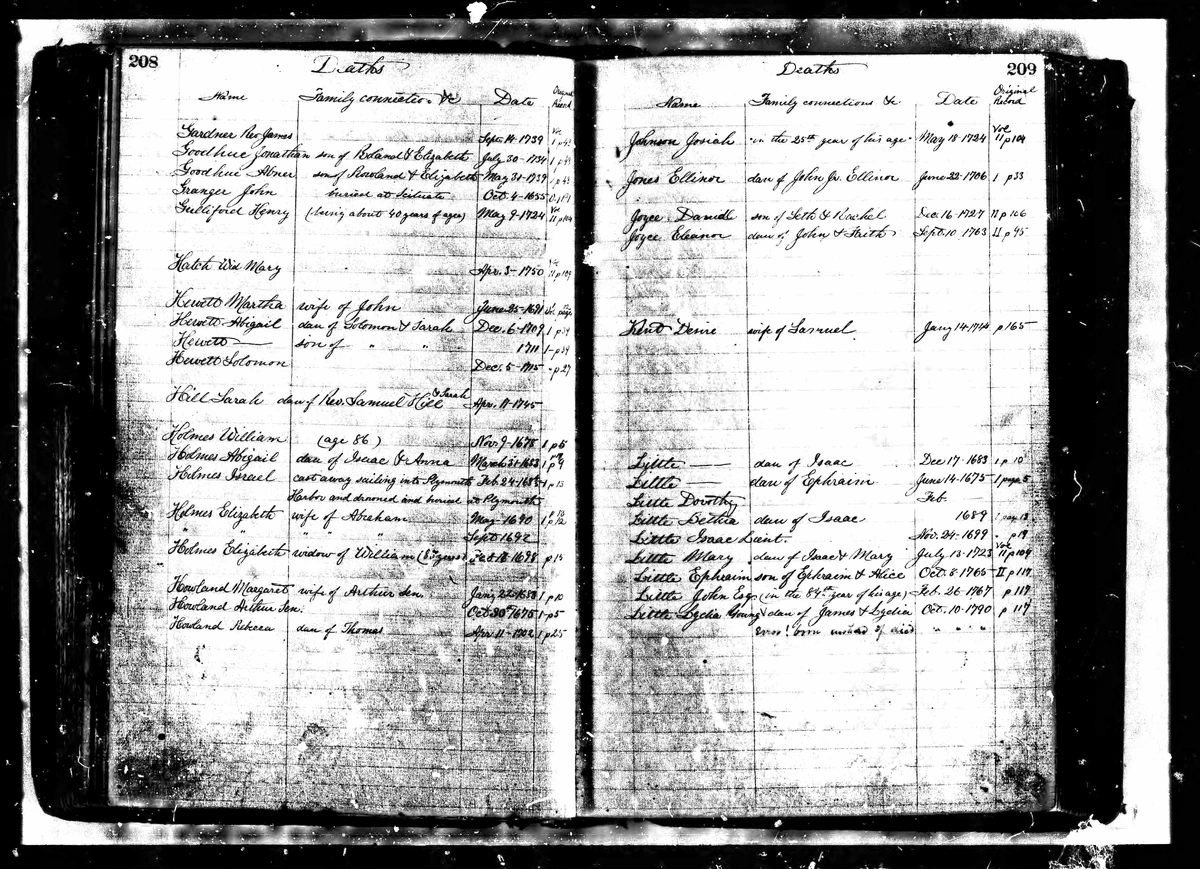 208
Deaths
Name Family connections &c Date Original Record
Gardner Rev James Sept. 14 1739 Vol 1 p 43
Goodhue Jonathan son of Roland & Elizabeth July 30-1734 1 p 43
Goodhue Abner son of Rowland & Elizabeth May 31-1739 1 p 43
Granger John buried at Scituate Oct. 4-1655
Gulliford Henry (being about 40 years of age) May 9-1724 Vol II p 104
Hatch Wid Mary Apr. 3-1750 Vol II p 109
Hewett Martha wife of John June 25-1691
Hewett Abigail dau of Solomon & Sarah Dec. 6-1709 1 p 39
Hewett —— son of " " 1711 1-p 39
Hewett Solomon Dec. 5-1715 -p 27
Hill Sarah dau of Rev. Samuel Hill & Sarah Apr. 11-1745
Holmes William (age 86) Nov. 9-1678 1 p 5
Holmes Abigail dau of Isaac & Anna March 31-1683 1 p 9
Holmes Israel cast away sailing into Plymouth Feb. 24-1685 1 p 13
Harbor and drowned and buried at Plymouth
Holmes Elizabeth wife of Abraham May-1690 1 p 12
" " " Sept 1692 p 13
Holmes Elizabeth widow of William Feb 18-1698 p 15
Howland Margaret wife of Arthur Sen. Jany 22-1683 1 p 10
Howland Arthur Sen. Oct. 30th 1675 1-p 5
Howland Rebecca dau of Thomas Apr. 11-1702 1 p 25
209
Deaths
Name Family connections &c Date Original Record
Johnson Josiah in the 25th year of his age May 18-1724 Vol II p 104
Jones Ellinor dau of John Jr. Ellinor June 22-1706 1 p 33
Joyce Daniel son of Seth & Rachel Dec. 16-1727 II p 106
Joyce Eleanor dau of John & Faith Sept. 10 1763 II p 95
Kent Desire wife of Samuel Jany 14-1744 p 165
Little —— dau of Isaac Dec 17-1683 1 p 10
Little —— dau of Ephraim June 14-1675 1 page 5
Little Dorothy Feb.
Little Bethia dau of Isaac 1689 1 page 13
Little Isaac Lieut. Nov. 24-1699 p 19
Little Mary dau of Isaac & Mary July 13-1723 Vol II p 104
Little Ephraim son of Ephraim & Alice Oct. 8-1765 II p 117
Little John Esq (in the 84th year of his age) Feb. 26-1767 p 117
Little Lydia Young dau of James & Lydia Oct. 10-1790 p 117
Error! born instead of died " " "